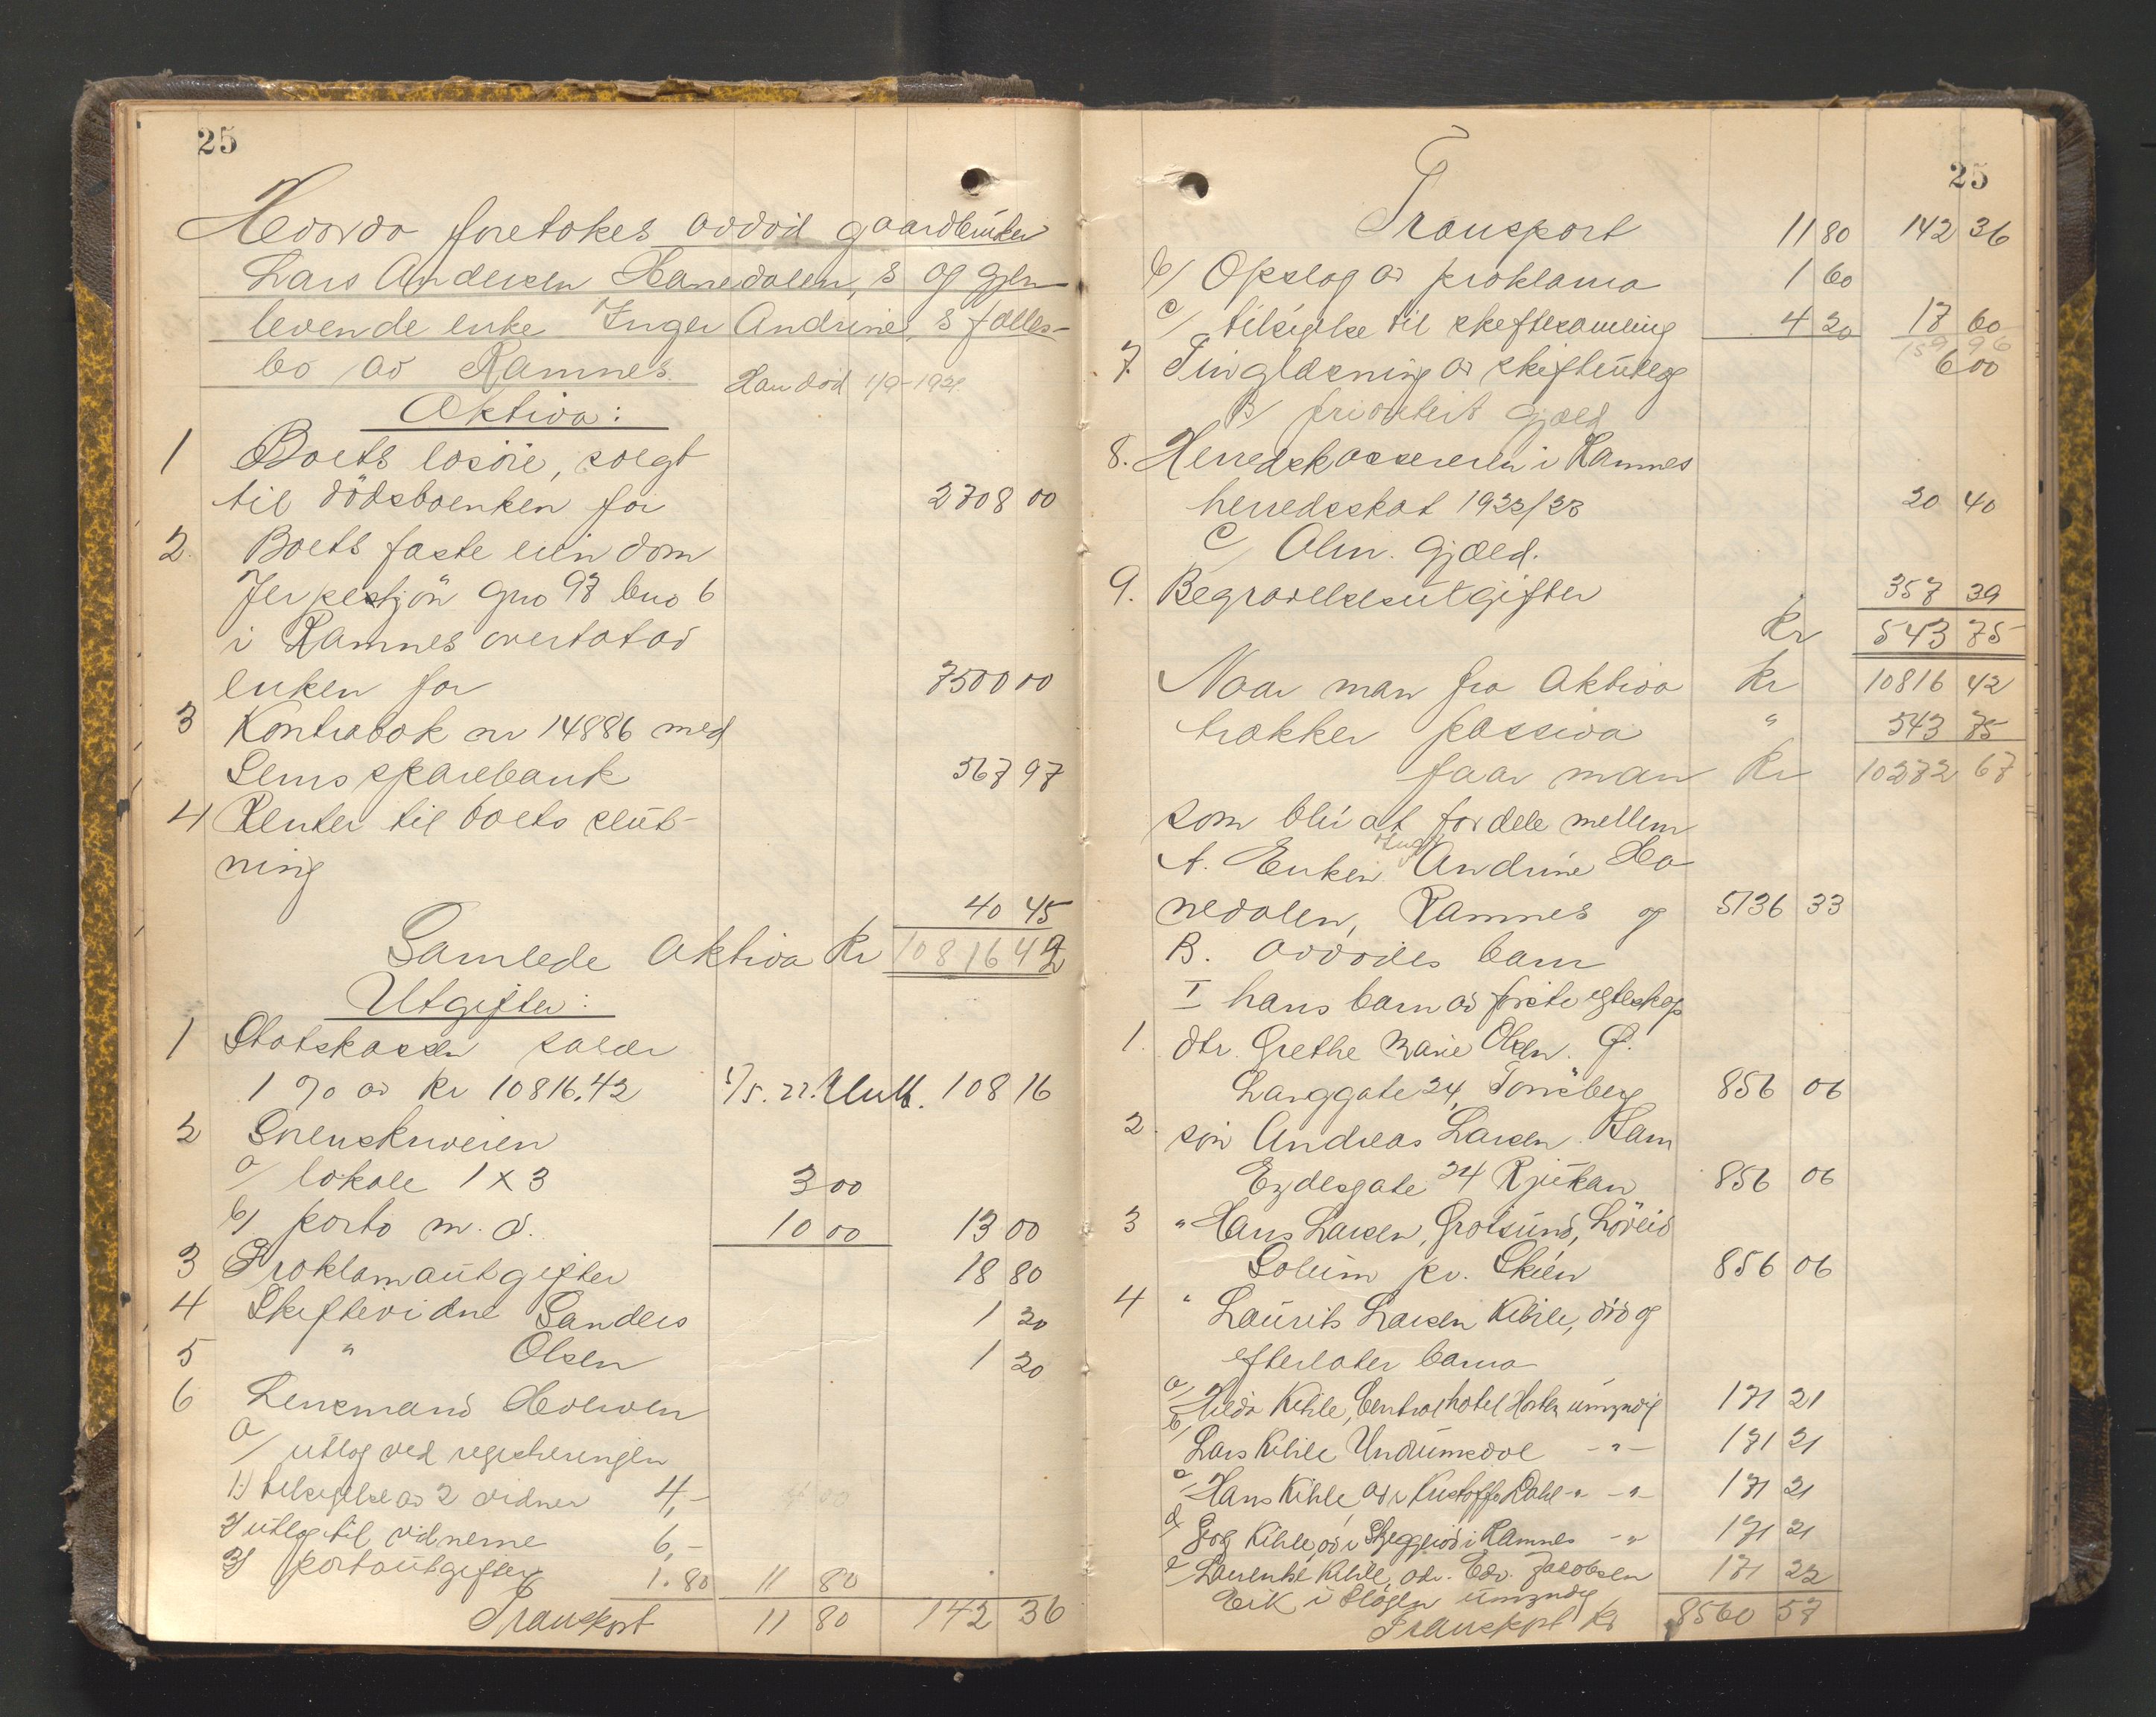 25
Hvorda foretokes avdöd gaardbruker
Lars Andersen Hanedalen, s og gjen
levende enke Inger Andrine, s fælles-
bo av Ramnes. Han död 1/9-1921
Aktiva:
1 Boets lösöre, solgt
til dödsboenken for 2708 00
2. Boets faste eiendom
Jerpestjön gno 97 bno 6
i Ramnes overtat av
enken for 7500 00
3 Kontrabok nr 14886 med
Sems sparebank 567 97
4 Renter til boets slut-
ning 40 45
Samlede aktiva Kr 10816 42
Utgifter:
1 Statskassen salær
1 % av Kr 10816.42 108 16
2 Sorenskriveren
a/ lokale 1 x 3 3 00
b/ porto m. v. 10 00 13 00
3 Proklamautgifter 18 80
4 Skiftevidne Sanders 1 20
5 " Olsen 1 20
6 Lensmand
a/ utlæg ved registreringen
1) tilsigelse av 2 vidner 4,-
2) utlæg til vidnerne 6,-
3) portoutgifter 1.80 11 80
Transport 11 80 142 36
25
Transport 11 80 142 36
b/ Opslag av proklama 1 60
c/ tilsigelse til skiftesamling 4 20 17 60
159 96
7. Tinglæsning av skifteutlæg 6 00
B/ prioritert gjæld
8. Herredskassereren i Ramnes
herredsskat 1922/23 20 40
C/ Alm. gjæld.
9. Begravelsesutgifter 357 39
Kr 543 75
Naar man fra aktiva Kr 10816 42
trækker passiva " 543 75
faar man Kr 10272 67
som blir at fordele mellem
A. Enken Inger Andrine Ha
nedalen, Ramnes og 5136 33
B. avdödes barn
I hans barn av förste egteskap
1. dtr. Grethe Marie Olsen. Ö.
Langgate 24, Tönsberg 856 06
2. sön Andreas Larsen. Sam
Eydesgate 24 Rjukan 856 06
3 " Hans Larsen, Grotsund, Löveid
Solum pr. Skien 856 06
4 " Laurits Larsen Kihle, död og
efterlater barna
a/ Hilda Kihle, Centralhotel Horten umyndig 171 21
b/ Lars Kihle Undrumsdal -"- 171 21
c/ Hans Kihle, adr Kristoffer Dahl -"- -"- 171 21
d/ Kihle, adr i Ramnes -"- 171 21
e/ Laurentse Kihle, adr. Edv. Jacobsen 171 22
Eik i Slagen umyndig
Transport Kr 8560 57